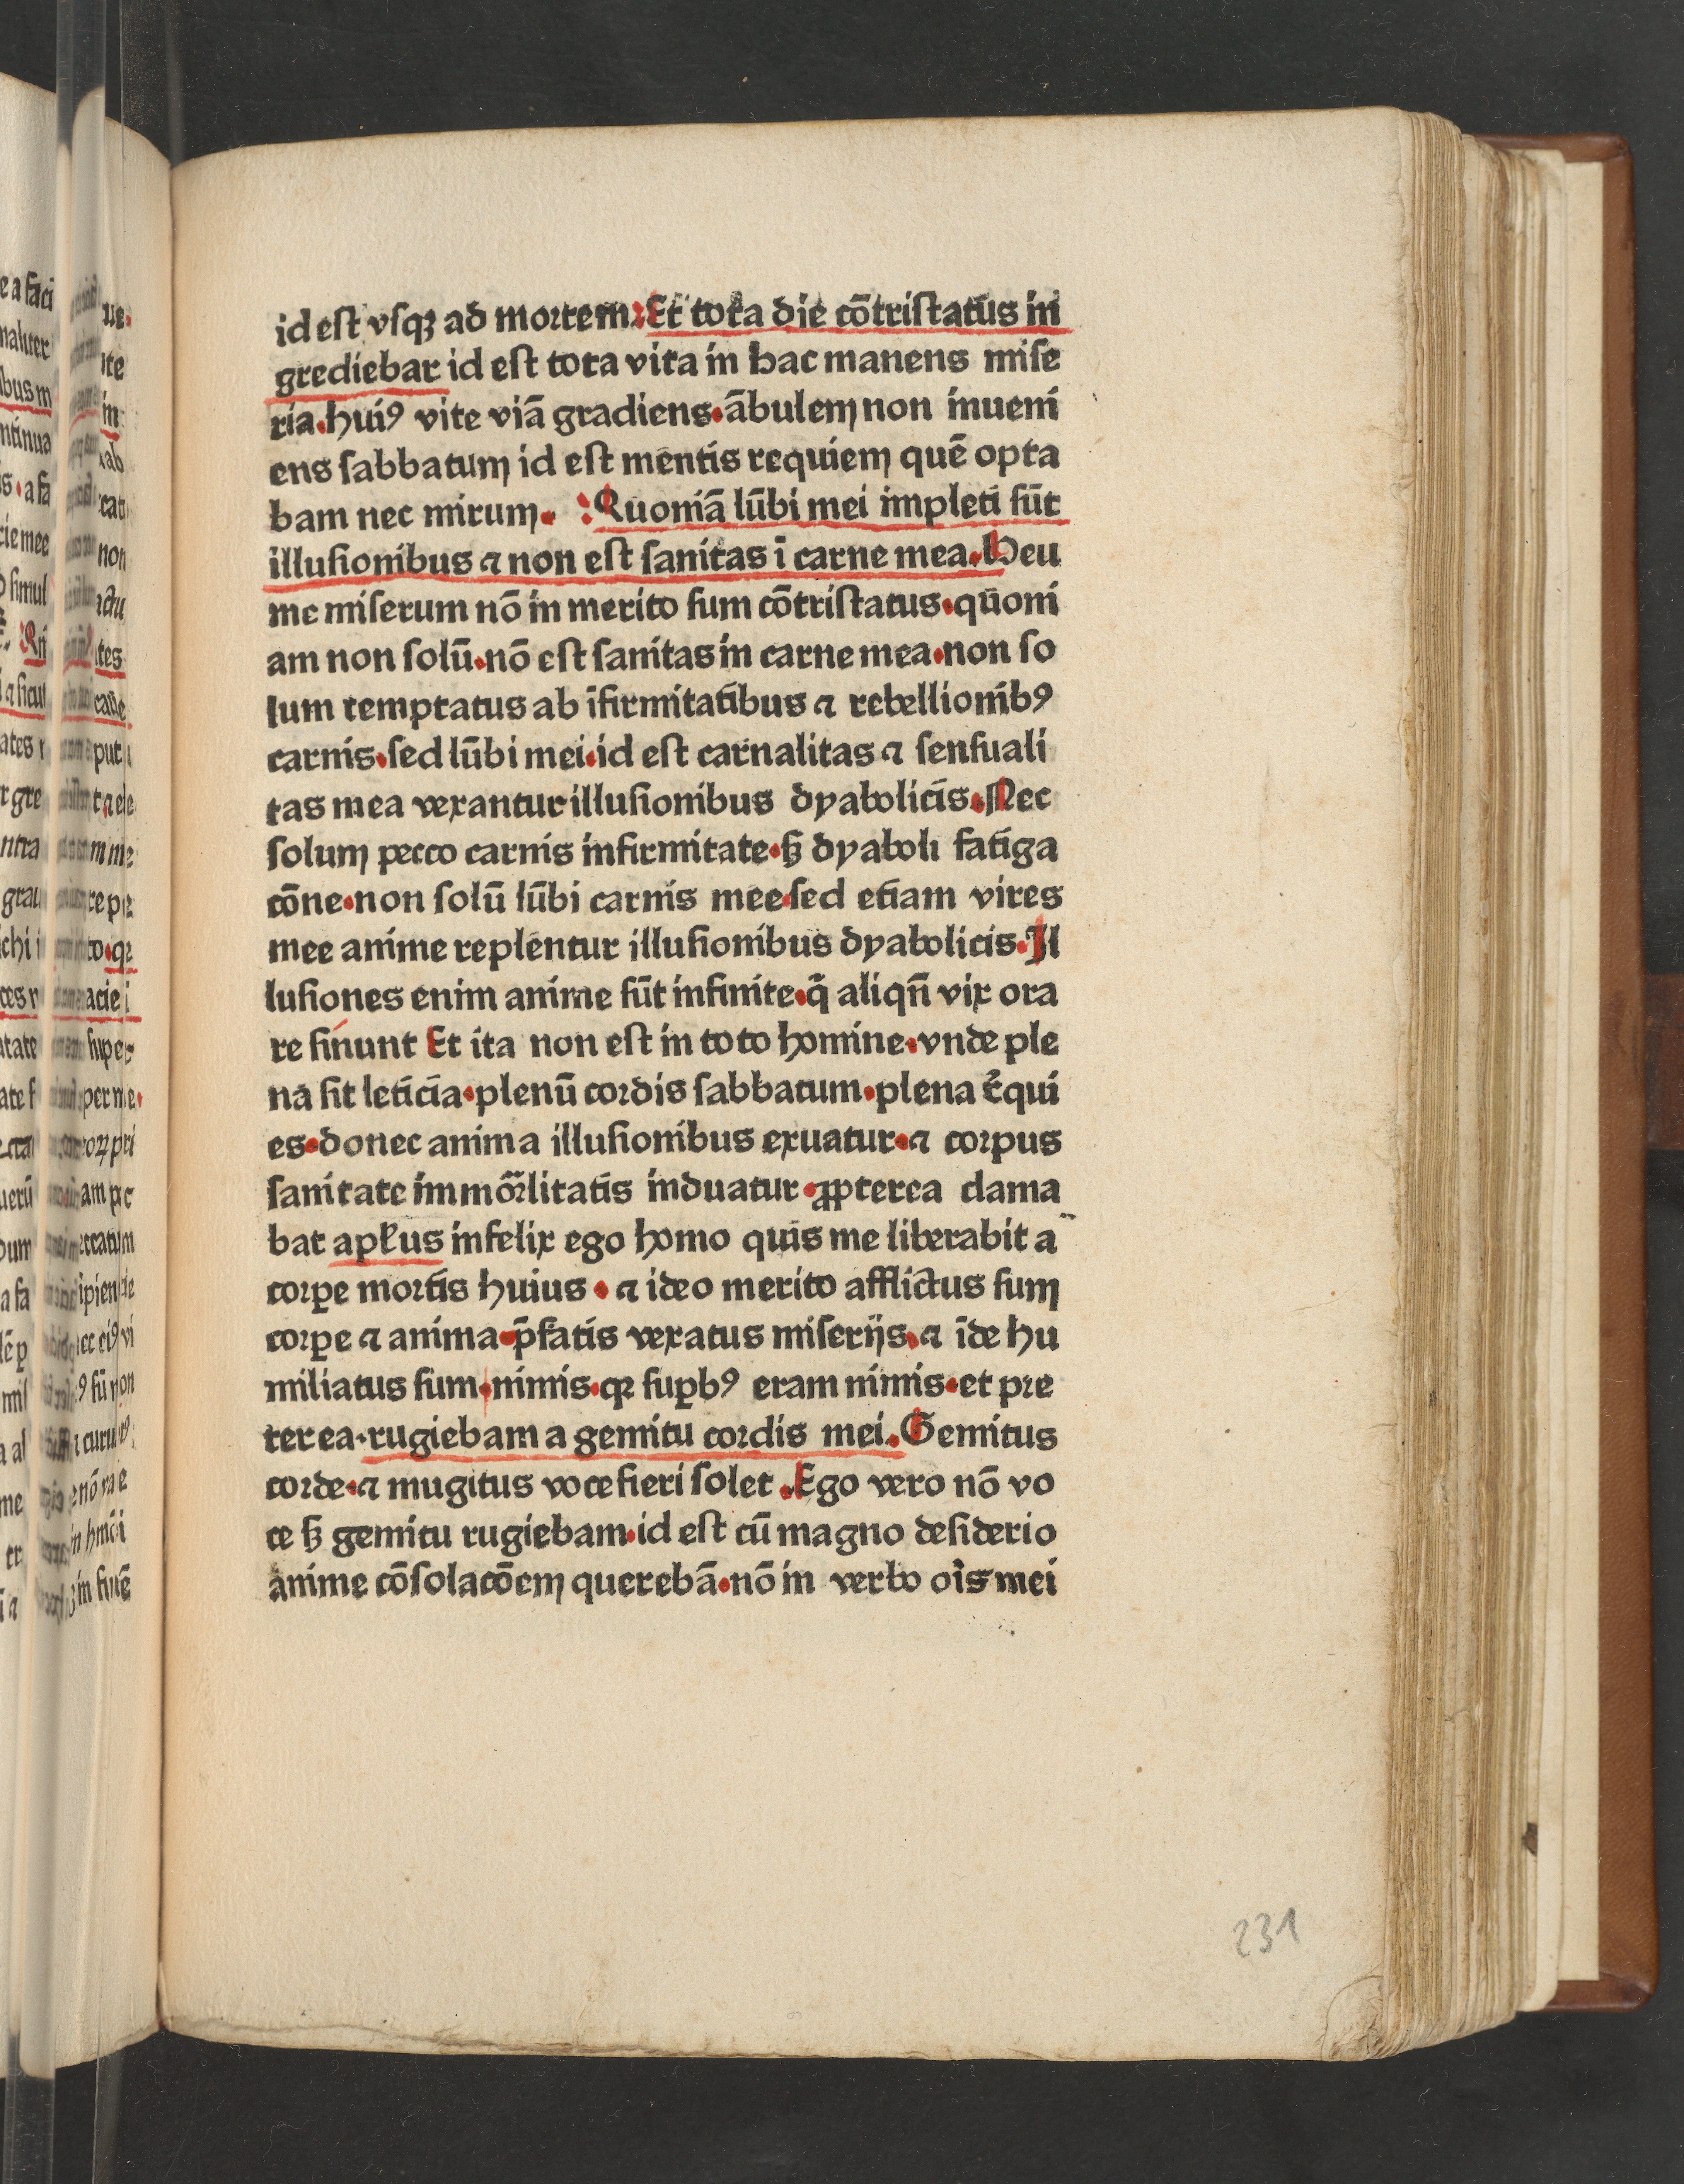 id est vſqꝫ ad mortem. Et tota die cōtristatus in
grediebar id est tota vita in hac manens mise
ria. huiꝰ vite viā gradiens. ābulem non inueni
ens sabbatum id est mentis requiem quē opta
bam nec mirum. Quoniā lūbi mei impleti sūt
illusionibus ⁊ non est sanitas ī carne mea. Heu
me miserum nō in merito sum cōtristatus. quoni
am non solū. nō est sanitas in carne mea. non so
lum temptatus ab īfirmitatibus ⁊ rebellionibꝰ
carnis. sed lūbi mei. id est carnalitas ⁊ sensuali
tas mea vexantur illusionibus dyabolicis. Nec
solum pecco carnis infirmitate. sꝫ dyaboli fatiga
cōne. non solū lūbi carnis mee. sed etiam vires
mee anime replentur illusionibus dyabolicis. Il
lusiones enim anime sūt infinite. q̄ aliqn̄ vix ora
re sinunt Et ita non est in toto homine. vnde ple
na sit leticia. plenū cordis sabbatum. plena r̄qui
es. donec anima illusionibus exuatur. ⁊ corpus
sanitate immōrlitatis induatur. ꝓpterea clama
bat apl̄us infelix ego homo quis me liberabit a
corꝑe mortis huius. ⁊ ideo merito afflictus sum
corꝑe ⁊ anima. p̄fatis vexatus miserijs. ⁊ īde hu
miliatus sum. nimis. qꝛ suꝑbꝰ eram nimis. et pre
terea. rugiebam a gemitu cordis mei. Gemitus
corde. ⁊ mugitus voce fieri solet. Ego vero nō vo
ce sꝫ gemitu rugiebam. id est cū magno desiderio
anime cōsolacōem querebā. nō in verbo oris mei
231